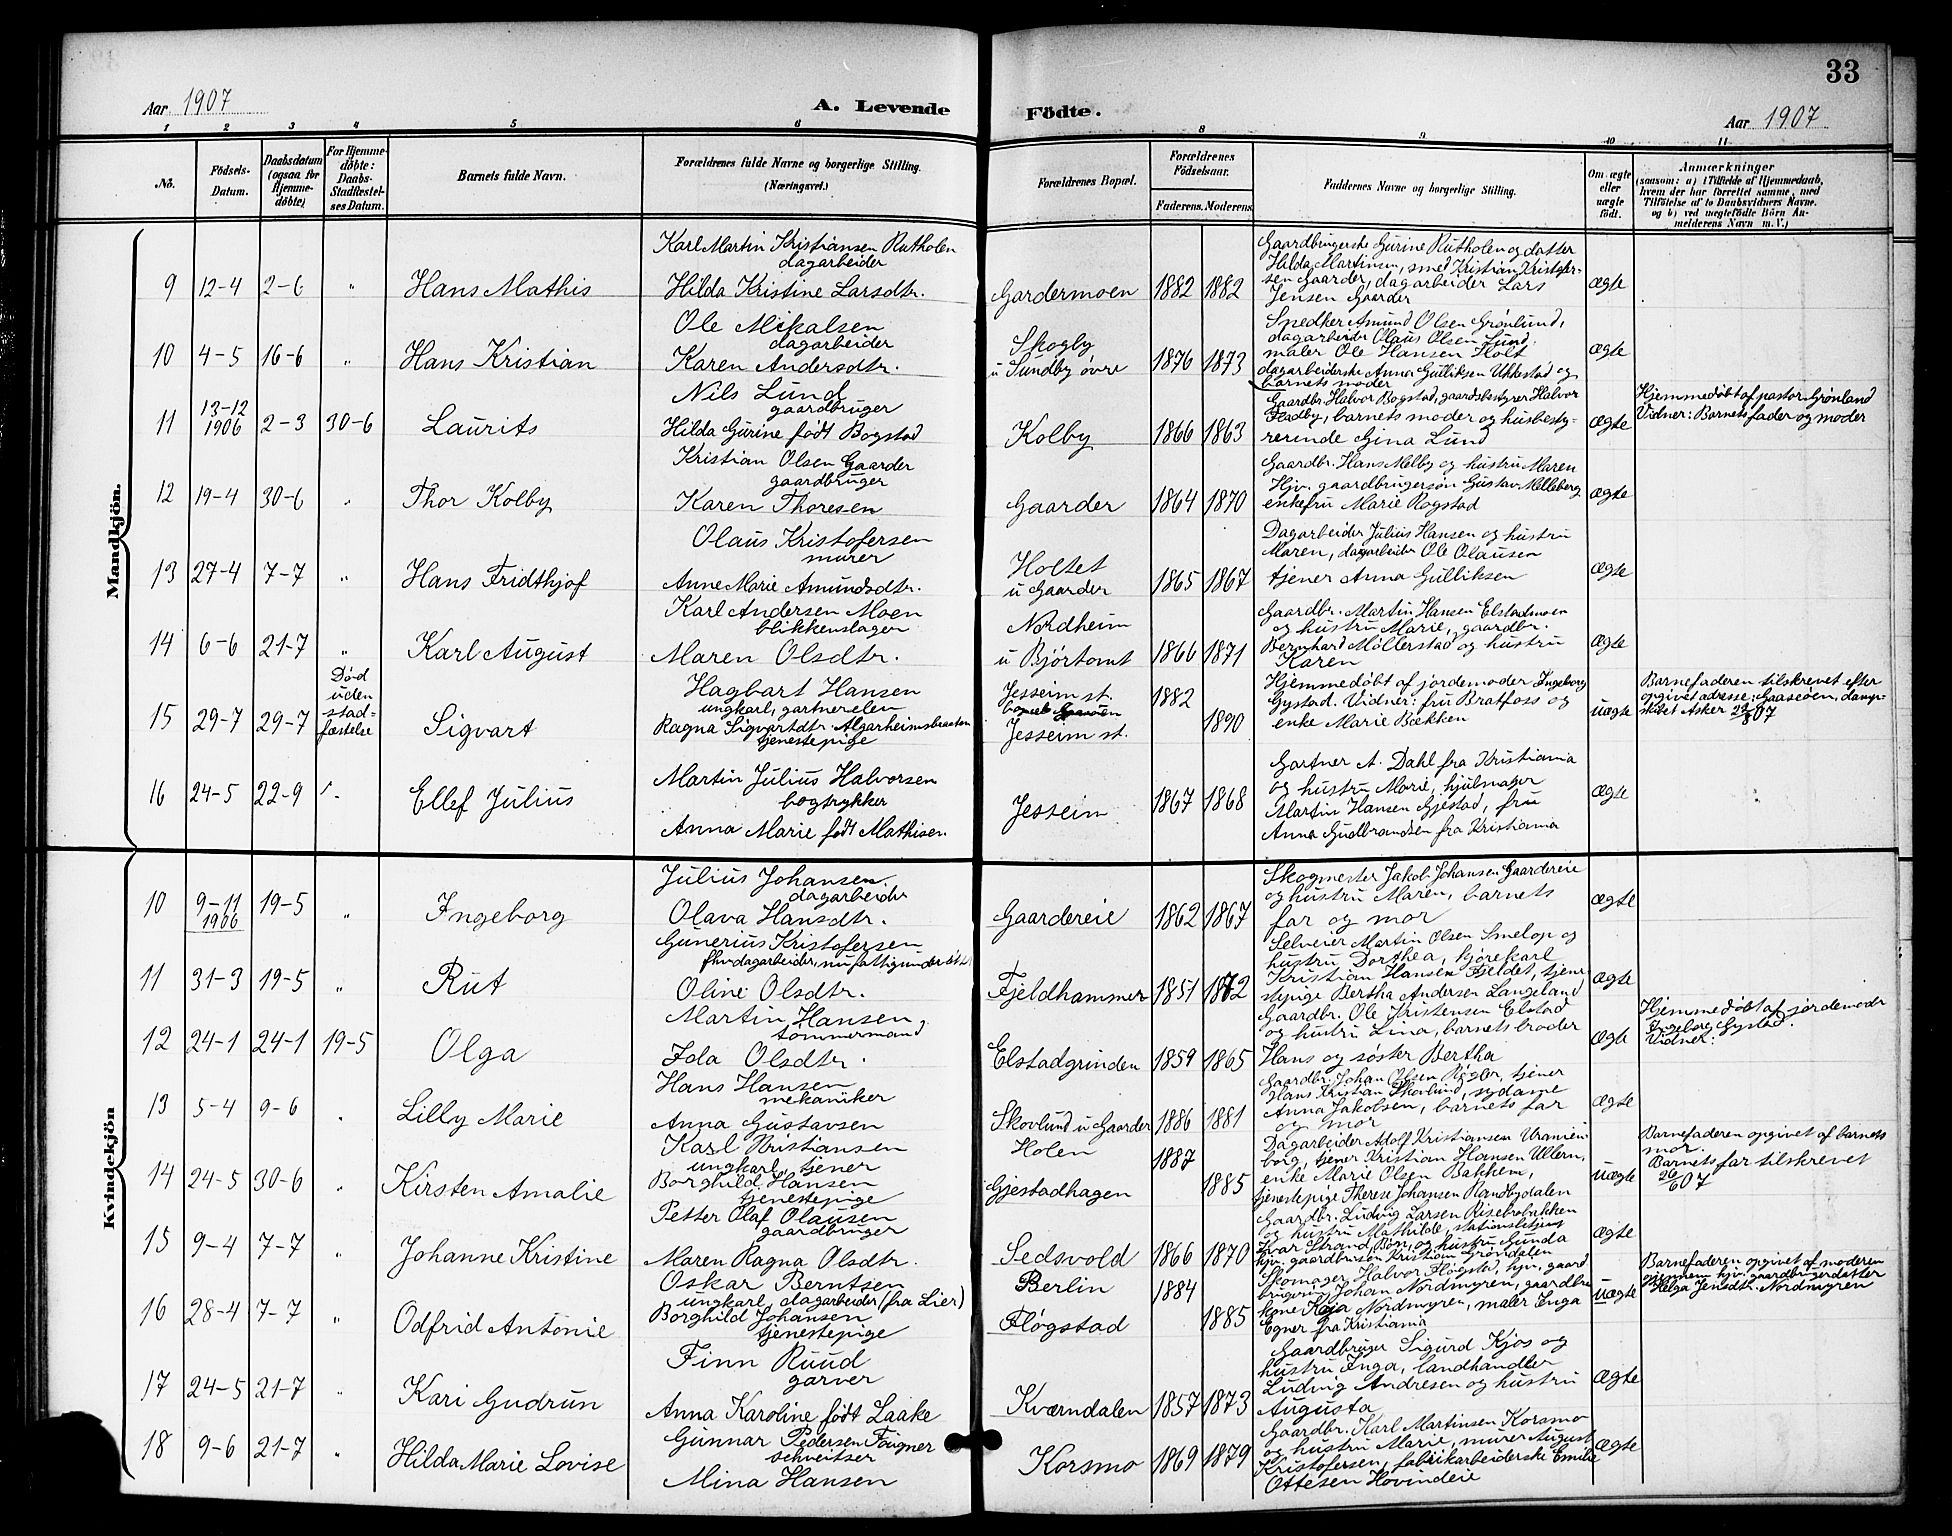 33
Aar 1907
A. Levende
Födte.
Aar 1907
1 2 3 4 5 6 8 9 10 11
No.
Födsels-Datum.
Daabsdatum (ogsaa for Hjemme-döbte)
For Hjemme-döbte: Daabs-Stadfæstel-ses Datum.
Barnets fulde Navn.
Forældrenes fulde Navne og borgerlige Stilling. (Næringsvei.)
Forældrenes Bopæl.
Forældrenes Födselsaar.
Faderens. Moderens.
Faddernes Navne og borgerlige Stilling.
Om ægte eller uægte födt.
Anmærkninger
(saasom: a) i Tilfælde af Hjemmedaab,
hvem der har forrettet samme, med
Tilföielse af to Daabsvidners Navne.
og b) ved uegtefödte Börn An-
melderens Navn m.V.)
Mandkjön.
Karl Martin Kristiansen Rutholen
dagarbeider
9 12-4 2-6 " Hans Mathis
Hilda Kristine Larsdtr.
Gardermoen 1882 1882
Gaardbrugerske Gurine Rutholen og datter
Hilda Martinsen, smed Kristian Kristofer-
sen Gaarder, dagarbeider Lars
Jensen Gaarder
ægte
Ole Mikalsen
dagarbeider
10 4-5 16-6 " Hans Kristian
Karen Andersdtr.
Skogby
u Sundby øvre 1876 1873
Snedker Amund Olsen Grønlund,
dagarbeider Olaus Olsen Lund,
maler Ole Hansen Holt
dagarbeiderske Anna Gulliksen Ukkestad og
barnets moder
ægte
Nils Lund
gaardbruger
11 13-12 1906 2-3 30-6 Laurits
Hilda Gurine født Bogstad
Kolby 1866 1863
Gaardbr. Halvor Bogstad, gaardsbestyrer Halvor
barnets moder og husbesty-
rerinde Gina Lund
ægte
Hjemmedøbt af pastor Grønland
Vidner: Barnets fader og moder
Kristian Olsen Gaarder
gaardbruger
12 19-4 30-6 " Thor Kolby
Karen Thoresen
Gaarder 1864 1870
Gaardbr. Hans Melby og hustru Maren
Hjv. gaardbrugersøn Gustav Melleberg
enkefru Marie Rogstad
ægte
Olaus Kristofersen
murer
13 27-4 7-7 " Hans Fridthjof
Anne Marie Amundsdtr.
Holtet
u Gaarder 1865 1867
Dagarbeider Julius Hansen og hustru
Maren, dagarbeider Ole Olausen
tjener Anna Gulliksen
ægte
Karl Andersen Moen
blikkenslager
14 6-6 21-7 " Karl August
Maren Olsdtr.
Nordheim
u Bjørtomt 1866 1871
Gaardbr. Martin Hansen Elstadmoen
og hustru Marie, gaardbr.
Bernhard Møllerstad og hustru
Karen
ægte
Hagbart Hansen
ungkarl, gartnerelev
15 29-7 29-7 Død uden stad-fæstelse Sigvart
Ragna Sigvartdtr. Algarheimsbraaten
tjenestepige
Jesseim st.
Jesseim st.
1882
1890
Hjemmedøbt af jordemoder Ingeborg
Gystad. Vidner: fru Bratfoss og
enke Marie Bækken
uægte
Barnefaderen tilskrevet efter
opgivet adresse: Gaaseøen,
Asker 22/8 07
Martin Julius Halvorsen
bogtrykker
16 24-5 22-9 Ellef Julius
Anna Marie født Mathisen
Jesseim 1867 1868
Gartner A. Dahl fra Kristiania
og hustru Marie, hjulmager
Martin Hansen Gjestad, fru
Anna Gudbrandsen fra Kristiania
ægte
Kvindekjön
Julius Johansen
dagarbeider
10 9-11 1906 19-5 " Ingeborg
Olava Hansdtr.
Gaardereie 1862 1867
Skogmester Jakob Johansen Gaardereie
og hustru Maren, barnets
far og mor
ægte
Gunerius Kristofersen
fhv dagarbeider, nu fattigunderst.
11 31-3 19-5 " Rut
Oline Olsdtr.
Fjeldhammer 1851 1872
Selveier Martin Olsen Smelop og
hustru Dorthea, kjørekarl
Kristian Hansen Fjeldet, tjene-
stepige Bertha Andersen Langeland
ægte
Martin Hansen
tømmermand
12 24-1 24-1 19-5 Olga
Ida Olsdtr.
Elstadgrinden 1859 1865
Gaardbr. Ole Kristensen Elstad
og hustru Lina, barnets broder
Hans og søster Bertha
ægte
Hjemmedøbt af jordemoder
Ingeborg Gystad.
Vidner:
Hans Hansen
mekaniker
13 5-4 9-6 " Lilly Marie
Anna Gustavsen
Skovlund u Gaarder 1886 1881
Gaardbr. Johan Olsen Røgler, tjener
Hans Kristian Skovlund, sydame
Anna Jakobsen, barnets far
og mor
ægte
Karl Kristiansen
ungkarl, tjener
14 24-5 30-6 " Kirsten Amalie
Borghild Hansen
tjenestepige
Holen
Gjestadhagen
1887
1885
Dagarbeider Adolf Kristiansen Uranien-
borg, tjener Kristian Hansen Ullern,
enke Marie Olsen Bakken,
tjenestepige Therese Johansen Randbydalen
uægte
Barnefaderen opgivet af barnets
mor.
Barnets far tilskrevet
26/6 07
Petter Olaf Olausen
gaardbruger
15 9-4 7-7 " Johanne Kristine
Maren Ragna Olsdtr.
Sedsvold 1866 1870
Gaardbr. Ludvig Larsen Risebrobakken
og hustru Mathilde, stationsbetjent
Ivar Strand, Bøn, og hustru Gunda
hjv. gaardbrusøn Kristian Grøndalen
ægte
Oskar Berntsen
ungkarl, dagarbeider (fra Lier)
16 28-4 7-7 " Odfrid Antonie
Borghild Johansen
tjenestepige
Berlin
Fløgstad
1884
1885
Skomager Halvor Fløgstad, hjv. gaard
brugersøn Johan Nordmyren, gaardbru
kone Kaja Nordmyren, maler Inga
Egner fra Kristiania
uægte
Barnefaderen opgivet af moderen
gjennem hjv. gaardbrugerdatter
Helga Jensdtr. Nordmyren
Finn Ruud
garver
17 24-5 21-7 " Kari Gudrun
Anna Karoline født Laake
Kværndalen 1857 1873
Gaardbruger Sigurd Kjos og
hustru Inga, landhandler
Ludvig Andresen og hustru
Augusta
ægte
Gunnar Pedersen Fougner
schveitser
18 9-6 21-7 " Hilda Marie Lovise
Mina Hansen
Korsmo 1869 1879
Gaardbr. Karl Martinsen Korsmo
og hustru Marie, murer August
Kristofersen, fabrikarbeiderske Emilie
Ottesen Hovindeie
ægte